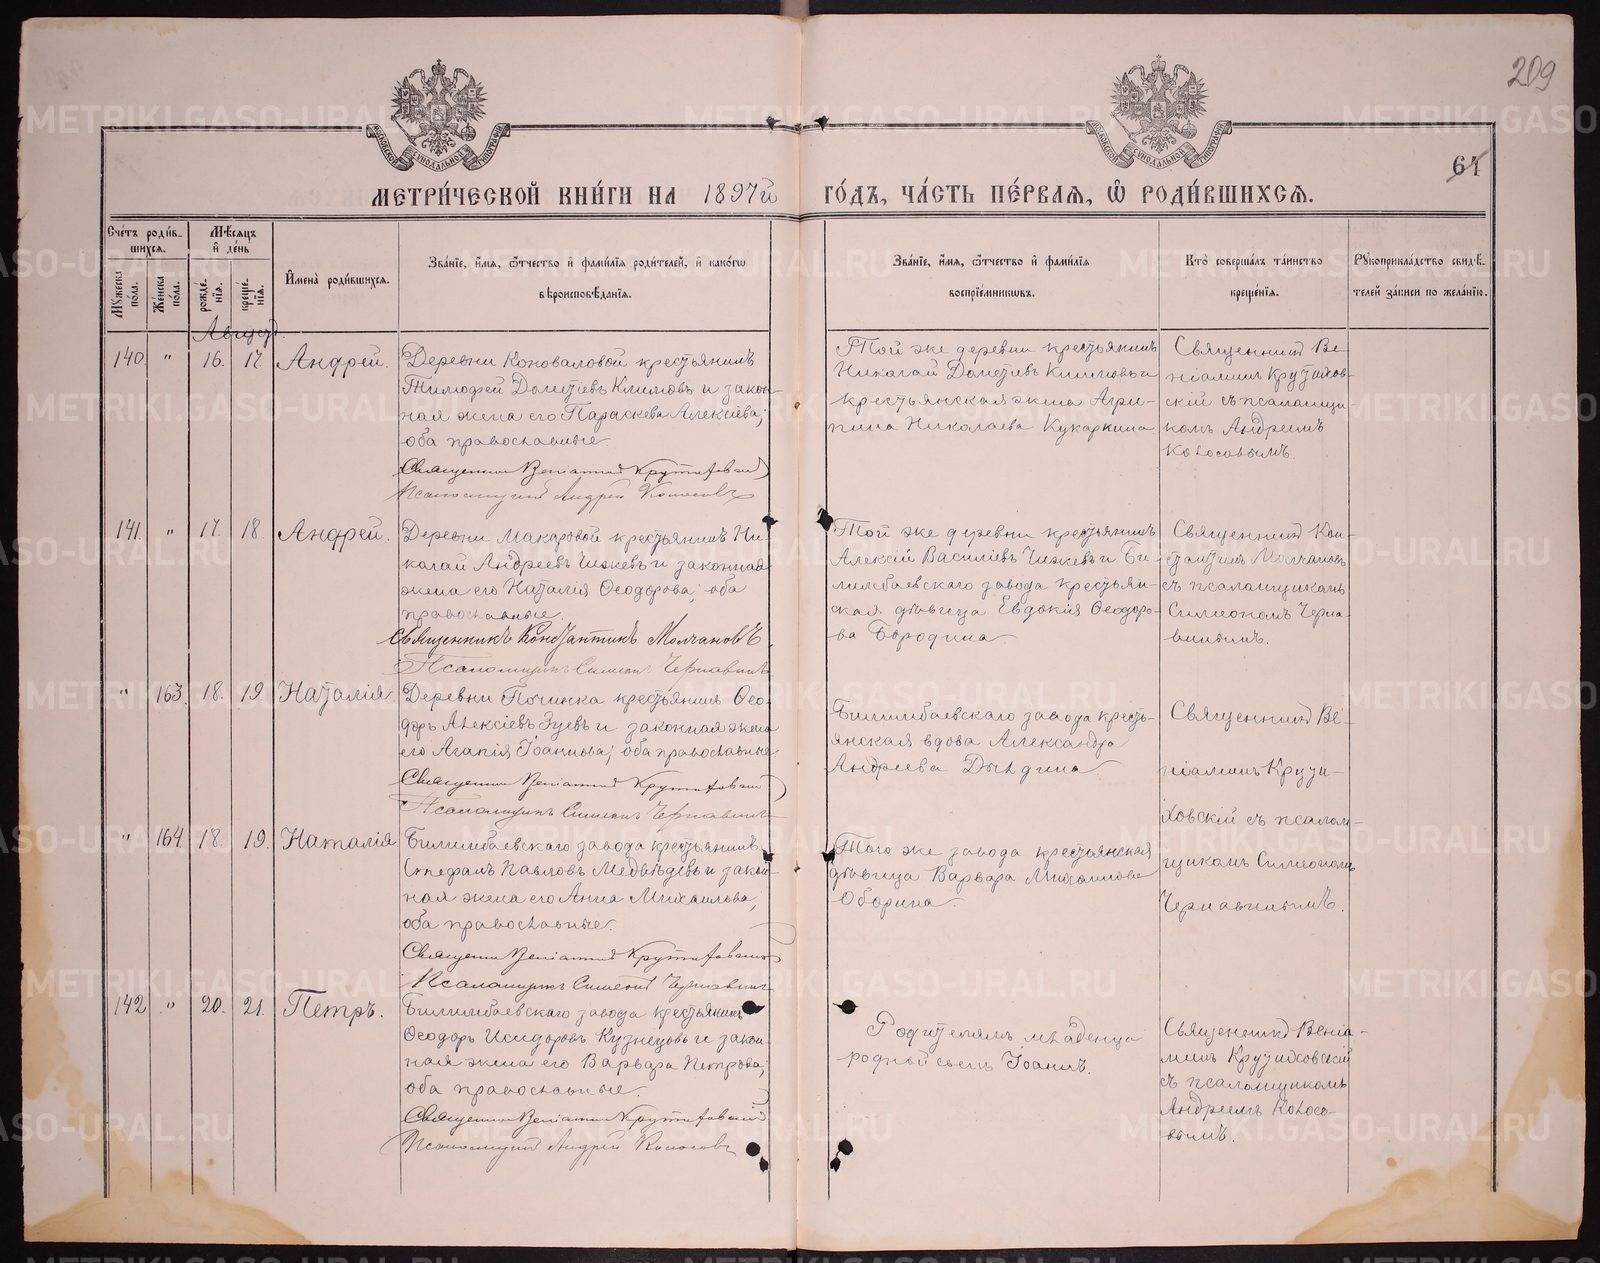 209
64
МЕТРИ́ЧЕСКОЙ КНИ́ГИ НА 1897й ГО́ДЪ, ЧА́СТЬ ПЕ́РВАЯ, Ѿ РОДИ́ВШИХСЯ.
Счетъ родившихся.
Мужеска пола.
Женска пола.
Мѣсяцъ и день
рожденія.
крещенія.
Имена родившихся.
Званіе, имя, отчество и фамилія родителей, и какогѡ
вѣроисповѣданія.
Званіе, имя, отчество и фамилія
воспріемниковъ.
Кто совершалъ таинство
крещенія.
Рукоприкладство свидѣ-
телей записи по желанію.
Августъ.
140 " 16. 17. Андрей.
Деревни Коноваловой крестьянинъ
Тимофей Дометіевъ Климовъ и закон-
ная жена его Параскева Алексіева;
оба православные.
Священникъ Веніаминъ Крутиховскій
Псаломщикъ Андрей Колосовъ
Той же деревни крестьянинъ
Николай Дометіевъ Климовъ и
крестьянская жена Агри-
пина Николаева Кукаркина
Священникъ Ве-
ніаминъ Крутихов-
скій съ псаломщи-
комъ Андреемъ
Колосовымъ.
141. " 17. 18. Андрей.
Деревни Макаровой крестьянинъ Ни-
колай Андреевъ Чижевъ и законная
жена его Наталія Ѳеодорова; оба
православные
Священникъ Константинъ Молчановъ.
Псаломщикъ Симеонъ Чернавинъ
Той же деревни крестьянинъ
Алексій Василіевъ Чижевъ и Би-
лимбаевскаго завода крестьян-
ская дѣвица Евдокія Ѳеодоро-
ва Бородина
Священникъ Кон-
стантинъ Молчановъ
съ псаломщикомъ
Симеономъ Черна-
винымъ.
" 163. 18. 19. Наталія.
Деревни Починка крестьянинъ Ѳео-
доръ Алексіевъ Зуевъ и законная жена
его Агапія Іоаннова; оба православные
Священникъ Веніаминъ Крутиховскій
Псаломщикъ Симеонъ Чернавинъ
Билимбаевскаго завода кресть-
янская вдова Александра
Андреева Дылдина.
Священникъ Ве-
ніаминъ Крути-
ховскій съ псалом-
щикомъ Симеономъ
Чернавинымъ.
" 164. 18. 19. Наталія
Билимбаевскаго завода крестьянинъ
Стефанъ Павловъ Медвѣдевъ и закон-
ная жена его Анна Михаилова;
оба православные.
Священникъ Веніаминъ Крутиховскій
Псаломщикъ Симеонъ Чернавинъ
Того же завода крестьянская
дѣвица Варвара Михаилова
Оборина.
142 " 20. 21. Петръ.
Билимбаевскаго завода крестьянинъ
Ѳеодоръ Исидоровъ Кузнецовъ и закон-
ная жена его Варвара Петрова;
оба православные.
Священникъ Веніаминъ Крутиховскій
Псаломщикъ Андрей Колосовъ
Родителямъ младенца
родный сынъ Іоаннъ.
Священникъ Веніа-
минъ Крутиховскій
съ псаломщикомъ
Андреемъ Колосо-
вымъ.
METRIKI.GASO-URAL.RU